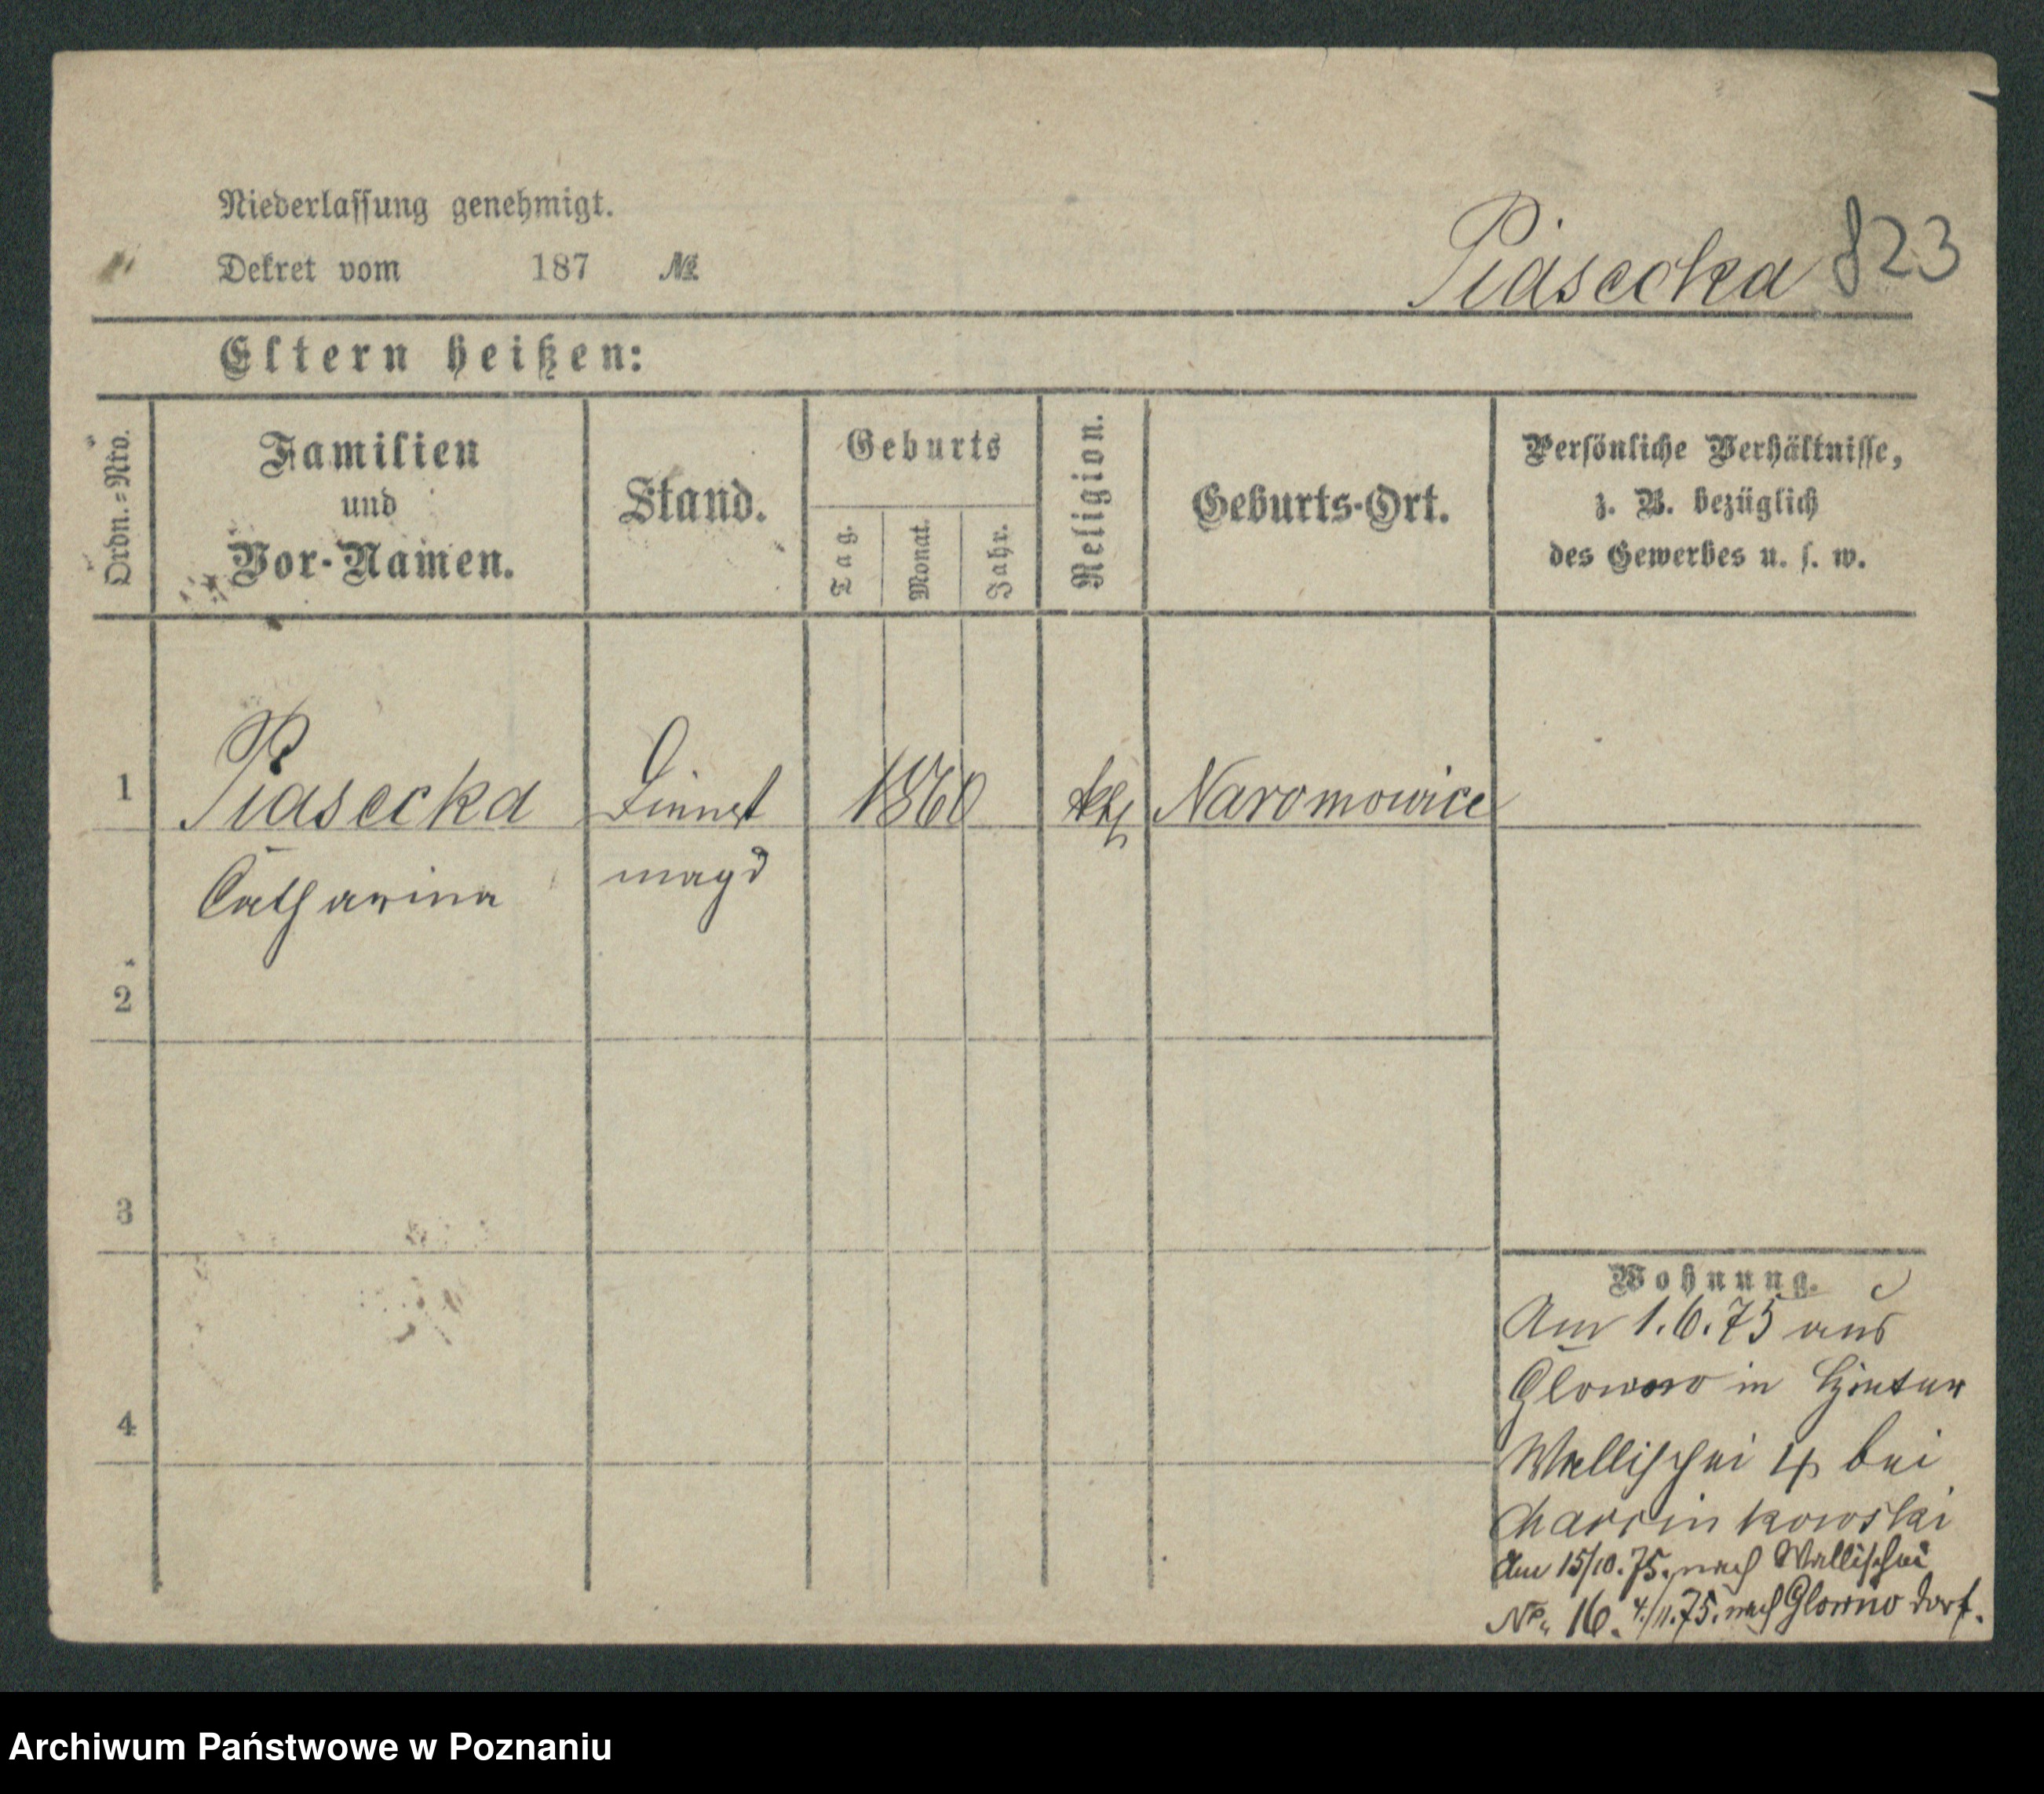 Niederlassung genehmigt.
Dekret vom 187 №
Piasecka 823
Eltern heißen:
Ordn.=Nro.
Familien
und
Vor-Namen.
Stand.
Geburts
Tag.
Monat.
Jahr.
Religion.
Geburts-Ort.
Persönliche Verhältnisse,
z. B. bezüglich
des Gewerbes u. s. w.
1 Piasecka Dienst 1860 kth Naromowice
Catharina magd
2
3
4
Wohnung.
Am 1.6.75 aus
Glowno in Hinter
Wallischei 4 bei
Marcinkowski
Am 15/10.75. nach Wallischei
No. 16. 4./11.75. nach Glowno Dorf.
Archiwum Państwowe w Poznaniu